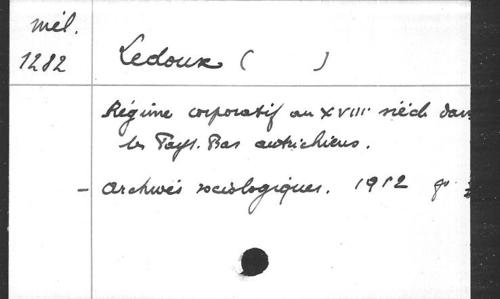 mél.
1282 Ledoux ( )
Régime corporatif au XVIII siècle dans
les Pays-Bas autrichiens.
- Archives sociologiques. 1912